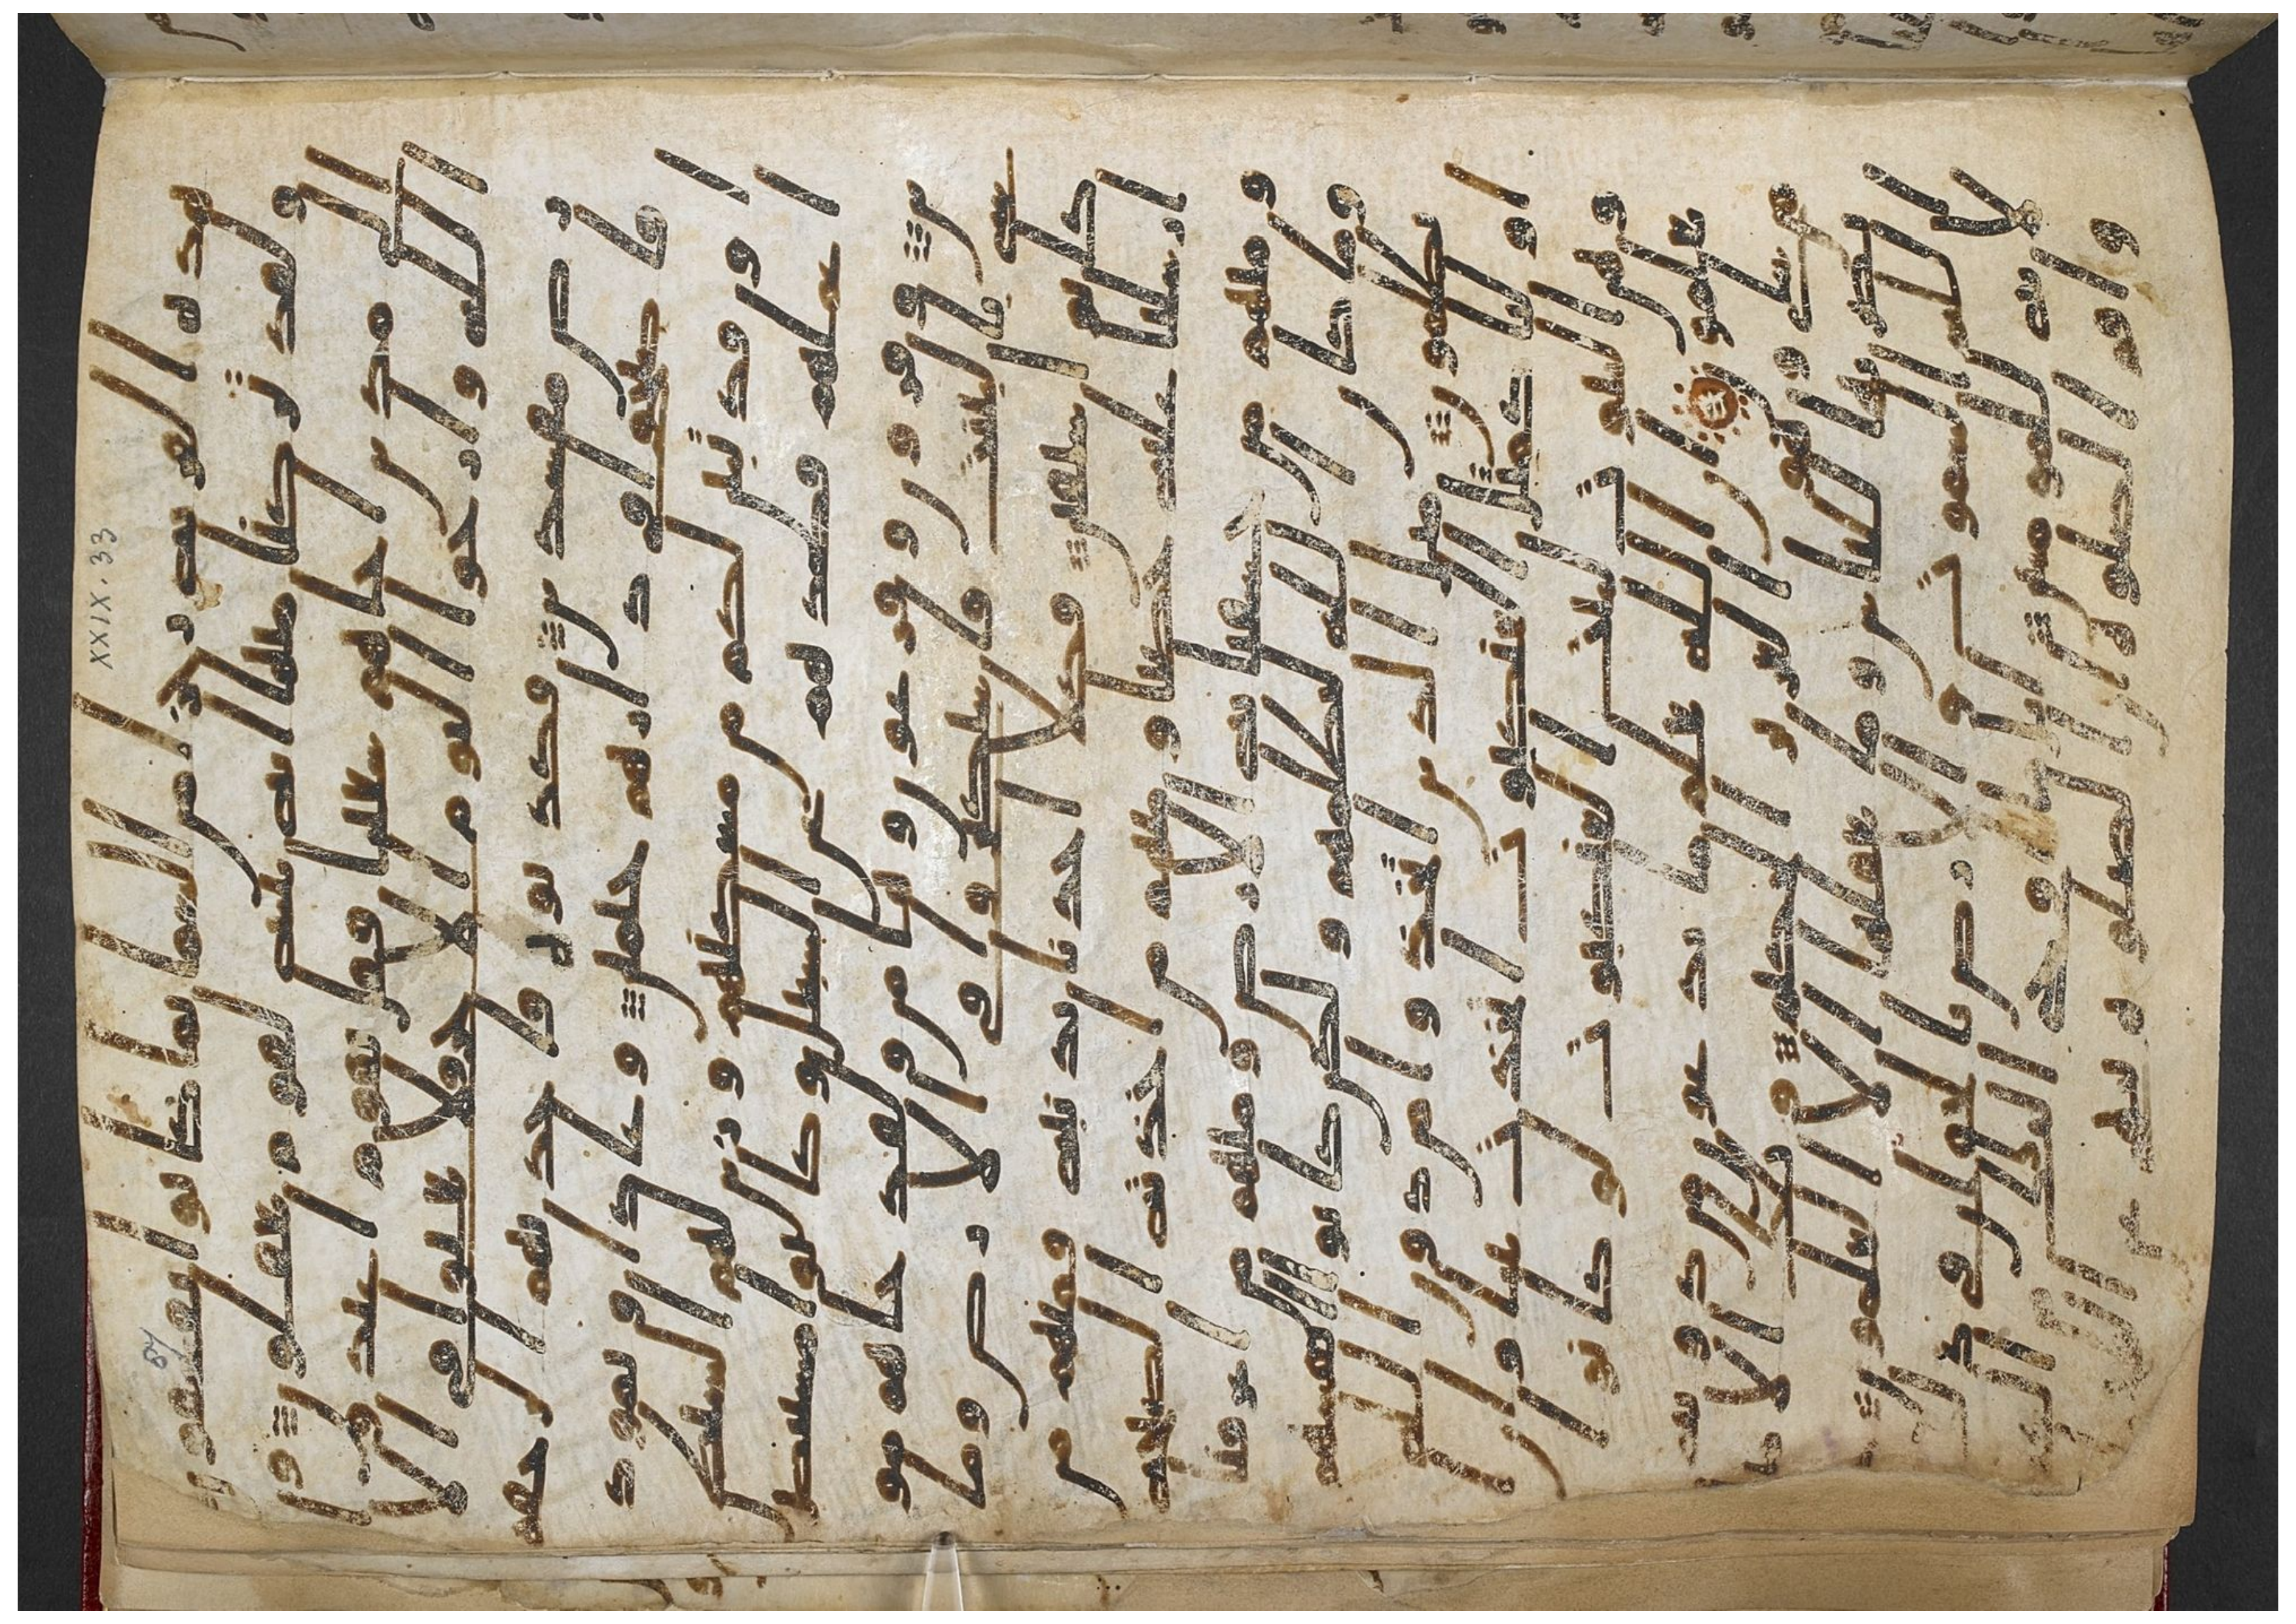 هذه القريه رجزا من السما بما كانوا يفسقون
ولقد تركنا منها ايه بينه لقوم يعقلون و
الى مدين اخاهم شعيبا فقال يقوم اعبدوا ا
لله وارجوا اليوم الاخر ولا تعثوا في الا
رض مفسدين فكذبوه فاخذتهم الرجفه
فاصبحوا في دارهم جثمين وعادا وثمود
ا وقد تبين لكم من مسكنهم وزين لهم الشيطن
اعملهم فصدهم عن السبيل وكانوا مستبصر
ين وقرون وفرعون وهمن ولقد جاهم مو
سى بالبينت فاستكبروا في الارض وما
كانوا سبقين فكلا اخذنا بذنبه فمنهم من
ارسلنا عليه حاصبا ومنهم من اخذته الصيحه
ومنهم من خسفنا به الارض ومنهم من اغرقنا
وما كان الله ليظلمهم ولكن كانوا انفسهم
يظلمون مثل الذين اتخذوا من دون الله
اوليا كمثل العنكبوت اتخذت بيتا وان ا
وهن البيوت لبيت العنكبوت لو كانوا
يعلمون ان الله يعلم ما يدعون من دونه
من شي وهو العزيز الحكيم وتلك الام
ثل نضربها للناس وما يعقلها الا العلمون
خلق الله السموت والارض بالحق ان في ذلك
لايه للمومنين اتل ما اوحي اليك من الكتب
واقم الصلوه ان الصلوه تنهى عن
XXIX. 33
67